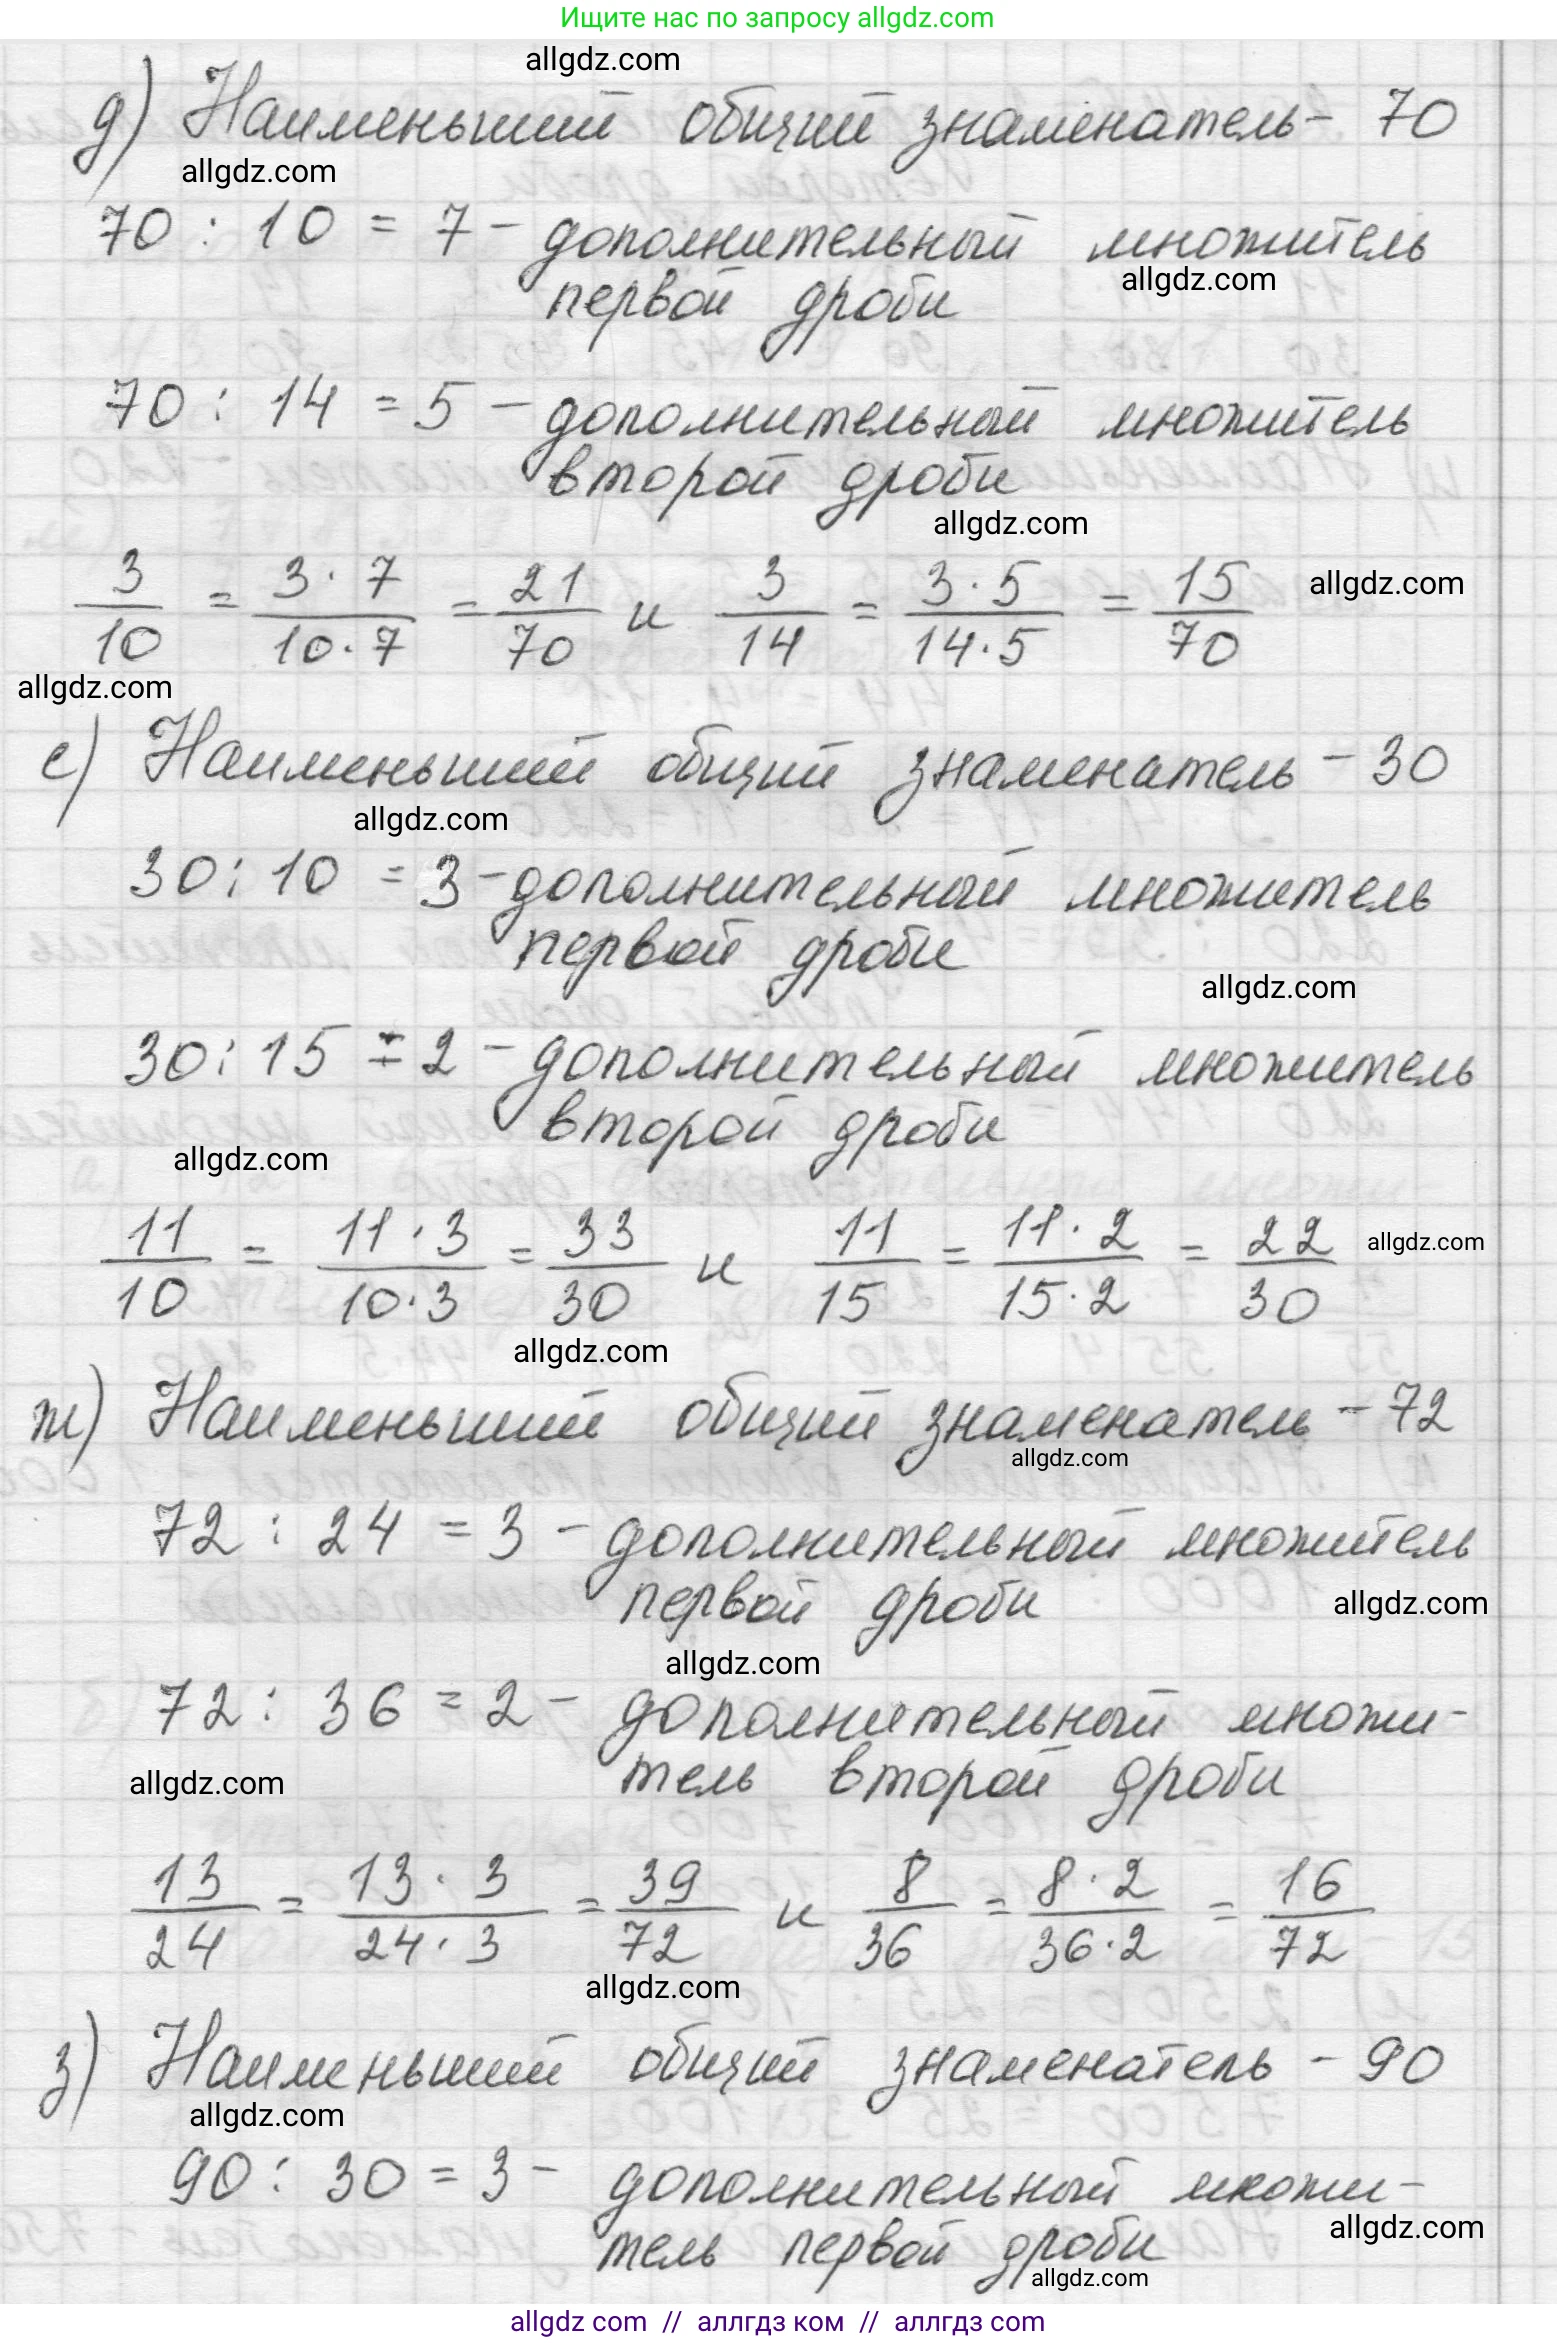 Ищите нас по запросу allgdz.com
allgdz.com
д) Наименьший общий знаменатель - 70
allgdz.com
70 : 10 = 7 - дополнительный множитель
allgdz.com
первой дроби
70 : 14 = 5 - дополнительный множитель
второй дроби
allgdz.com
3/10 = 3·7/10·7 = 21/70 и 3/14 = 3·5/14·5 = 15/70 allgdz.com
allgdz.com
е) Наименьший общий знаменатель - 30
allgdz.com
30 : 10 = 3 - дополнительный множитель
первой дроби
allgdz.com
30 : 15 = 2 - дополнительный множитель
второй дроби
allgdz.com
11/10 = 11·3/10·3 = 33/30 и 11/15 = 11·2/15·2 = 22/30 allgdz.com
allgdz.com
ж) Наименьший общий знаменатель - 72
allgdz.com
72 : 24 = 3 - дополнительный множитель
первой дроби allgdz.com
allgdz.com
72 : 36 = 2 - дополнительный множи-
тель второй дроби
allgdz.com
13/24 = 13·3/24·3 = 39/72 и 8/36 = 8·2/36·2 = 16/72
allgdz.com
з) Наименьший общий знаменатель - 90
allgdz.com
90 : 30 = 3 - дополнительный множи-
allgdz.com
тель первой дроби
allgdz.com
allgdz com // аллгдз ком // аллгдз com